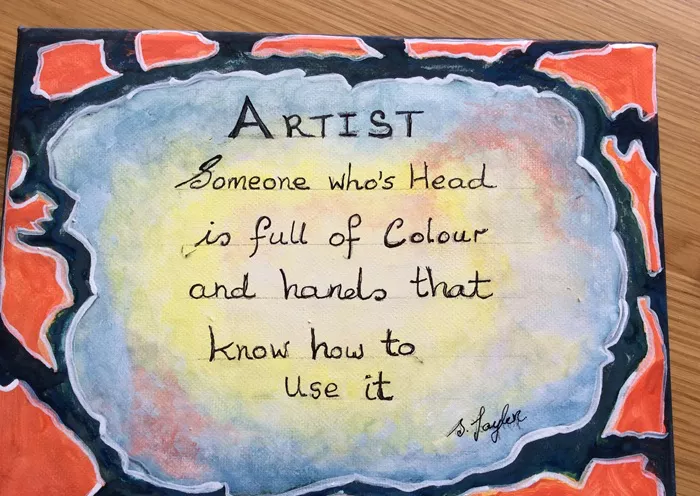 ARTIST
Someone who's Head
is full of Colour
and hands that
know how to
use it
S. Taylor